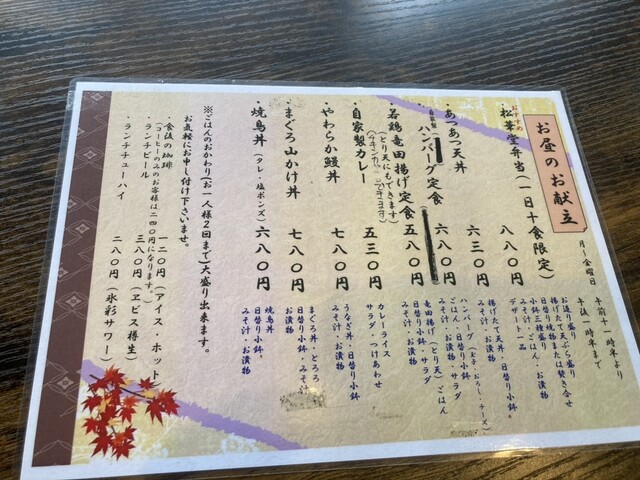 お昼のお献立
月～金曜日
午前十一時半より
午後一時半まで
おすすめ
・松華堂弁当(一日十食限定)
八八〇円
お造り三種盛り
日替り焼物または焚き合せ
揚げたて天ぷら盛り
小鉢三種盛り
みそ汁・ごはん・お漬物
デザート一品
・あつあつ天丼
六三〇円
揚げたて天丼・日替り小鉢
みそ汁・お漬物
・自家製ハンバーグ定食
六八〇円
ハンバーグ(玉子・おろし・チーズ)
ごはん・日替り小鉢・サラダ
みそ汁・お漬物
・若鶏竜田揚げ定食
(とり天にもできます)
五八〇円
竜田揚げ(とり天)・ごはん
日替り小鉢・サラダ
みそ汁・お漬物
・自家製カレー
五三〇円
カレーライス
サラダ・つけあわせ
・やわらか鰻丼
七八〇円
うなぎ丼・日替り小鉢
みそ汁・お漬物
・まぐろ山かけ丼
七八〇円
まぐろ丼・とろろ
日替り小鉢・みそ汁
お漬物
・焼鳥丼(タレ・塩ポンズ)
六八〇円
焼鳥丼
日替り小鉢
みそ汁・お漬物
※ごはんのおかわり(お一人様2回まで)大盛り出来ます。
お気軽にお申し付け下さいませ。
・食後の珈琲
一二〇円(アイス・ホット)
(コーヒーのみのお客様は二四〇円になります。)
・ランチビール
三八〇円(ヱビス樽生)
・ランチチューハイ
二八〇円(氷彩サワー)